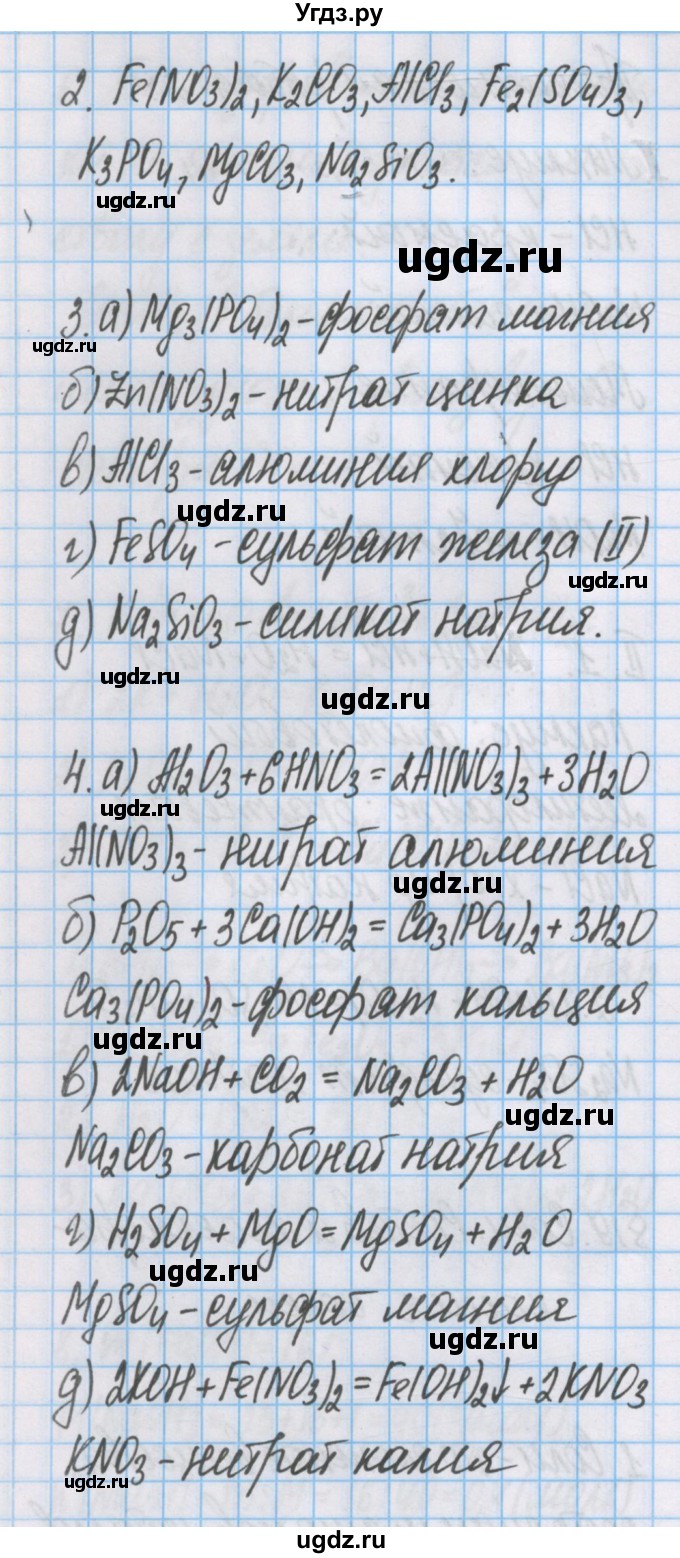 Угдз.ру
2. Fe(NO3)2, K2CO3, AlCl3, Fe2(SO4)3,
K3PO4, MgCO3, Na2SiO3.
ugdz.ru
ugdz.ru
3. а) Mg3(PO4)2 – фосфат магния
ugdz.ru
б) Zn(NO3)2 – нитрат цинка
в) AlCl3 – алюминия хлорид
ugdz.ru
г) FeSO4 – сульфат железа (II)
ugdz.ru
д) Na2SiO3 – силикат натрия.
ugdz.ru
ugdz.ru
4. а) Al2O3 + 6HNO3 = 2Al(NO3)3 + 3H2O
ugdz.ru
Al(NO3)3 – нитрат алюминия
ugdz.ru
б) P2O5 + 3Ca(OH)2 = Ca3(PO4)2 + 3H2O
Ca3(PO4)2 – фосфат кальция
ugdz.ru
в) 2NaOH + CO2 = Na2CO3 + H2O
ugdz.ru
Na2CO3 – карбонат натрия
г) H2SO4 + MgO = MgSO4 + H2O
ugdz.ru
MgSO4 – сульфат магния
ugdz.ru
д) 2KOH + Fe(NO3)2 = Fe(OH)2↓ + 2KNO3
KNO3 – нитрат калия
ugdz.ru